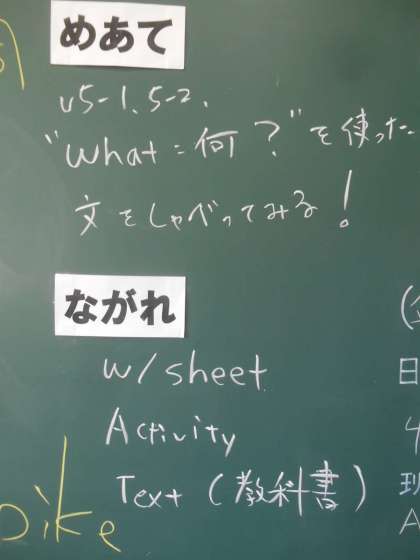 めあて
U5-1. 5-2.
"What=何?"を使った
文をしゃべってみる!
ながれ
w/sheet
Activity
Text (教科書)
日
班
A
oike